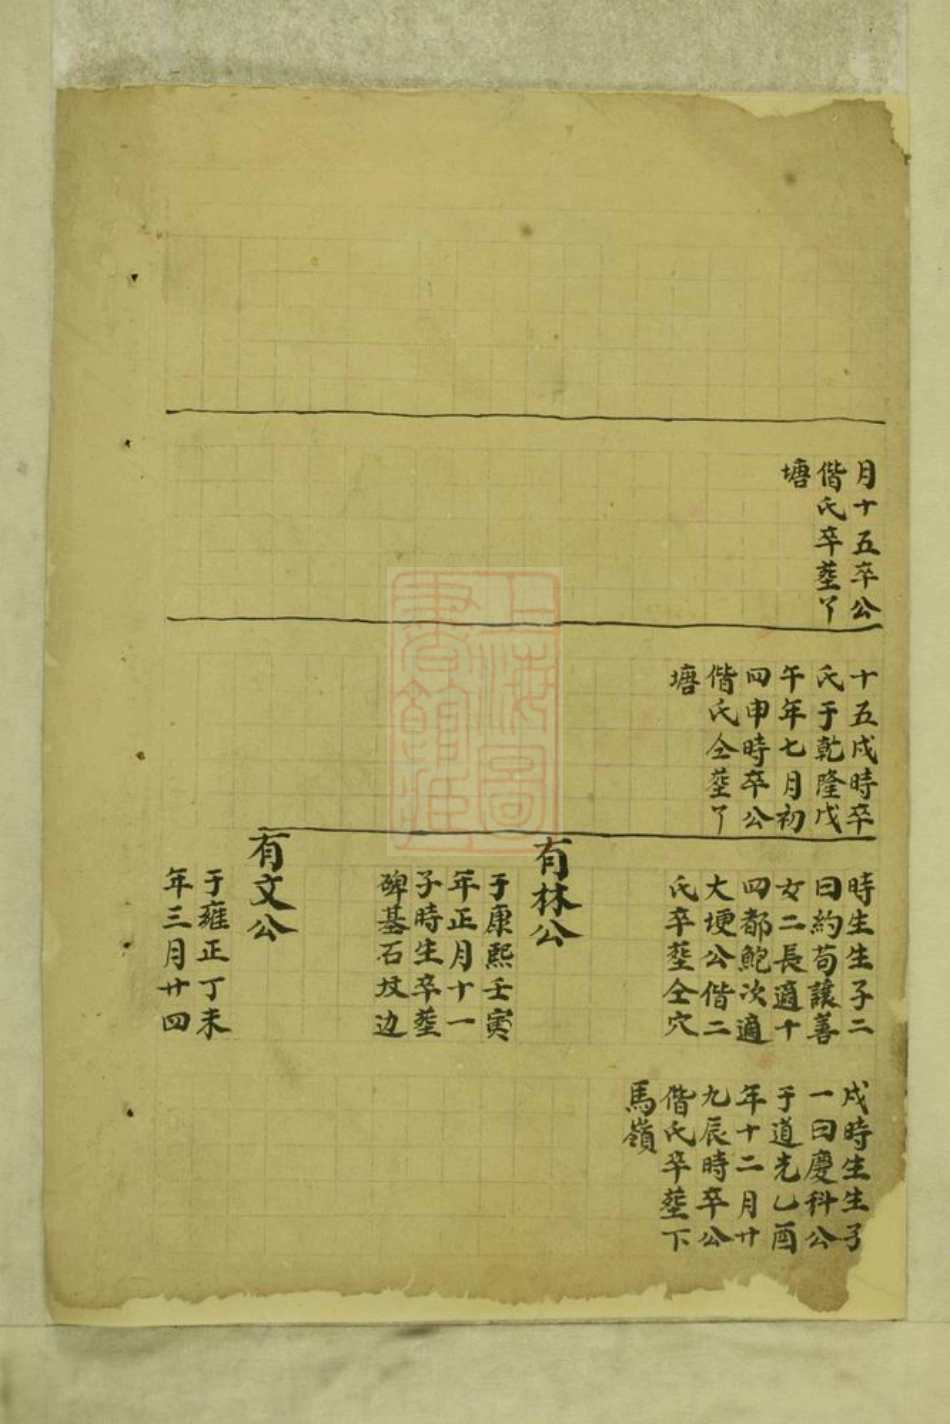 月十五卒公
偕氏卒塟丫
塘
十五戌時卒
氏于乾隆戊
午年七月初
四申時卒公
偕氏仝塟丫
塘
時生生子二
曰約苟讓善
女二長適十
四都鮑次適
大埂公偕二
氏卒塟仝穴
有林公
于康熙壬寅
年正月十一
子時生卒塟
碑基石坟边
有文公
于雍正丁未
年三月廿四
戌時生生子
一曰慶科公
于道光乙酉
年十二月廿
九辰時卒公
偕氏卒塟下
馬嶺
上海圖
書館藏